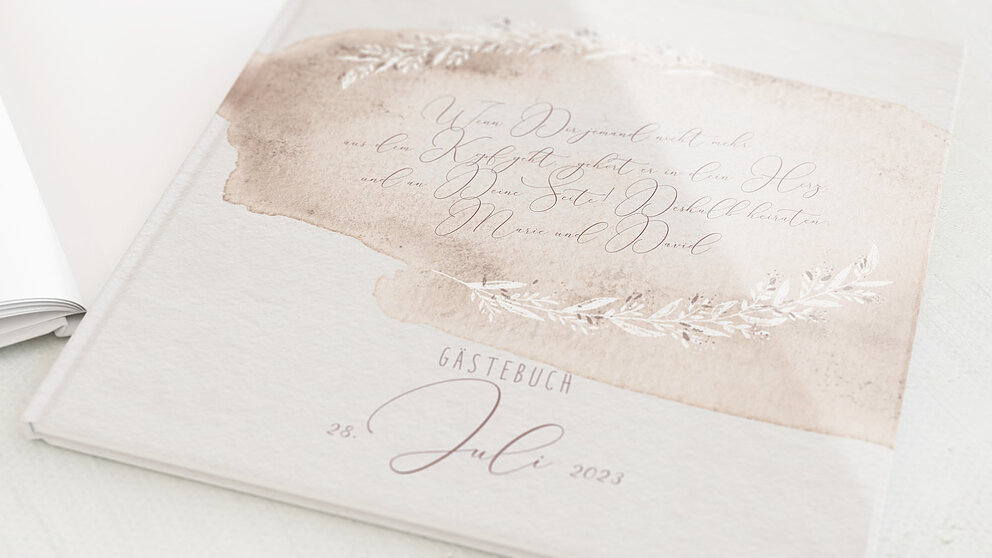 Wenn Dir jemand nicht mehr
aus dem Kopf geht, gehört er in dein Herz
und an Deine Seite! Deshalb heiraten
Marie und David
GÄSTEBUCH
28. Juli 2023